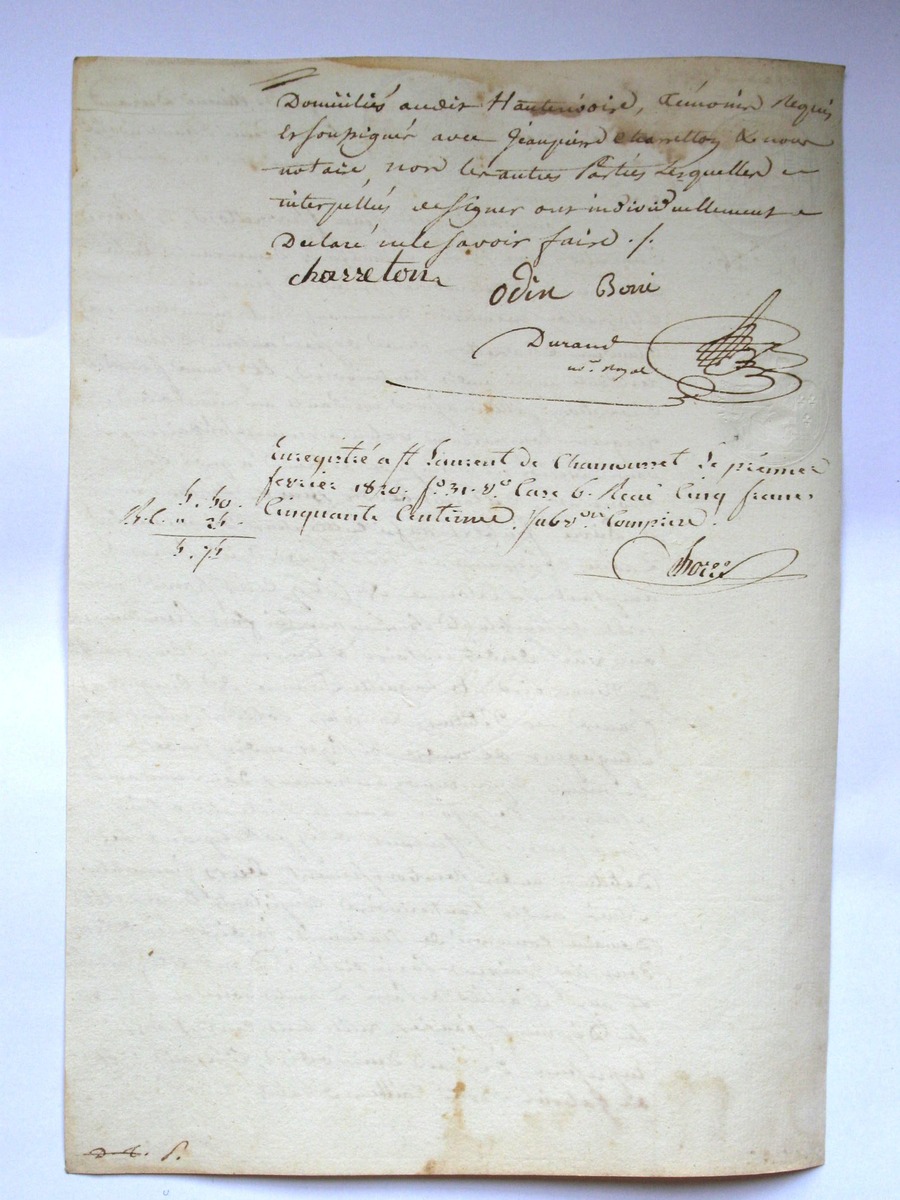 Domiciliés audit Hauterivoire, témoins Requis
Et Soussignés avec Jeanpierre Charreton & nous
notaire, non les autres Parties Lesquelles
interpellés de signer ont individuellement
Declaré ne le savoir faire ./.
charreton
Odin Boni
Durand
n.re Royal
Enregistré a St Laurent de Chamousset Le premier
fevrier 1820. f.o 31. v.o Case 6. Recu Cinq francs
Cinquante Centimes. Subv.on Comprise.
5. 50.
5. 75